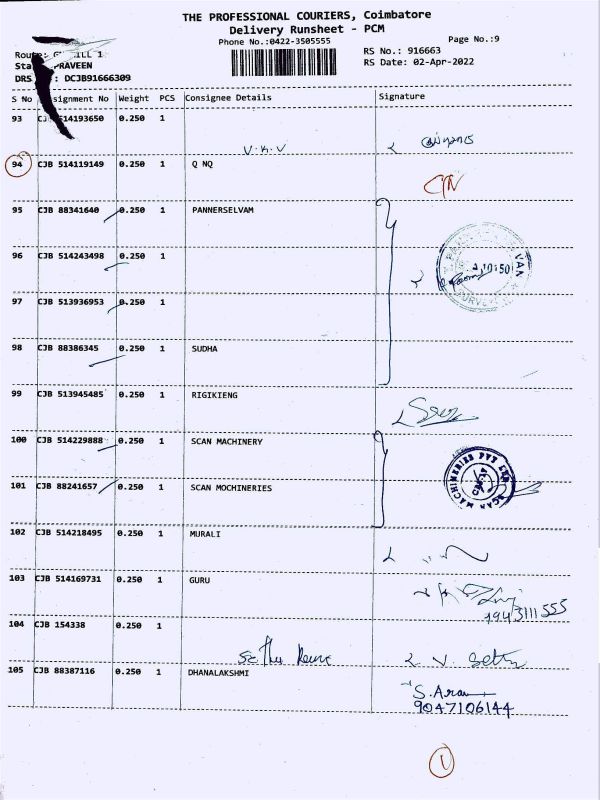 THE PROFESSIONAL COURIERS, Coimbatore
Delivery Runsheet - PCM
Phone No.:0422-3505555
Page No.:9
RS No.: 916663
RS Date: 02-Apr-2022
PRAVEEN
DRS : DCJB91666309
S No signment No Weight PCS Consignee Details Signature
93 514193650 0.250 1
V.K.V
94 CJB 514119149 0.250 1 Q NQ
95 CJB 88341640 0.250 1 PANNERSELVAM
96 CJB 514243498 0.250 1
10:50
97 CJB 513936953 0.250 1
98 CJB 88386345 0.250 1 SUDHA
99 CJB 513945485 0.250 1 RIGIKIENG
100 CJB 514229888 0.250 1 SCAN MACHINERY
SCAN MACHINERIES PVT LTD
101 CJB 88241657 0.250 1 SCAN MOCHINERIES
102 CJB 514218495 0.250 1 MURALI
103 CJB 514169731 0.250 1 GURU
104 CJB 154338 0.250 1
105 CJB 88387116 0.250 1 DHANALAKSHMI
9047106144
1